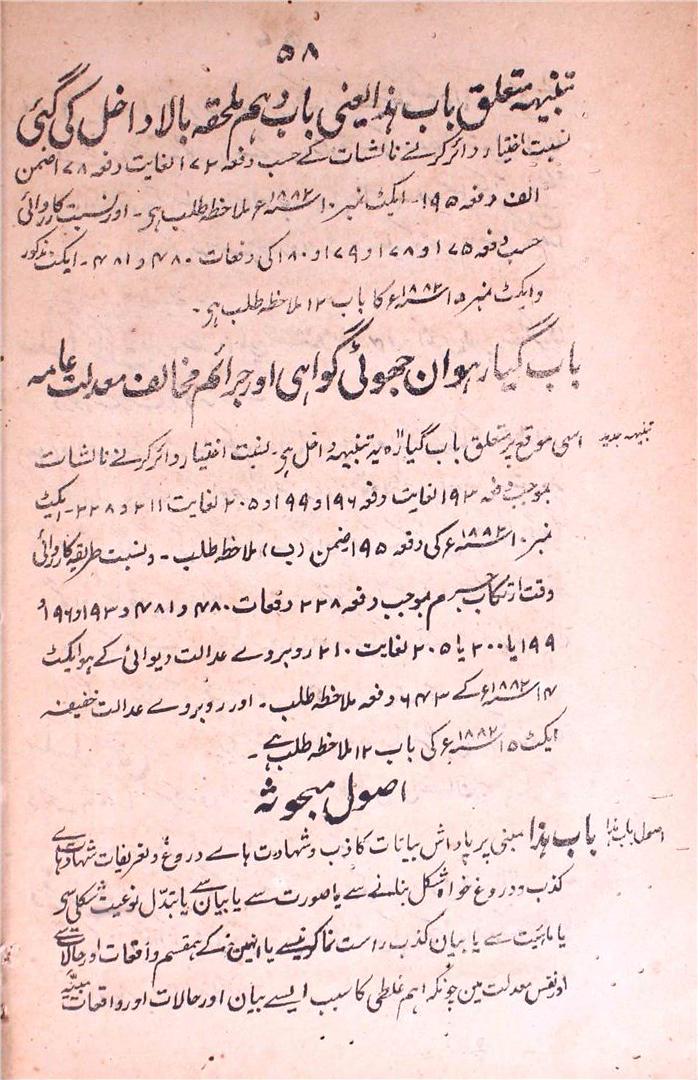 ۵۸
تنبیہہ متعلق باب ہذا یعنی باب دہم ملحقہ بالا داخل کی گئی
نسبت اختیار دائر کرنے نالشات کے حسب دفعہ ۱۷۲ لغایت دفعہ ۱۷۸ ضمن
الف دفعہ ۱۹۵۔ ایکٹ نمبر ۱۰ ۱۸۸۲ء ملاحظہ طلب ہی۔ اور نسبت کارروائی
حسب دفعہ ۱۷۵ و ۱۷۸ و ۱۷۹ و ۱۸۰ کی دفعات ۴۸۰ و ۴۸۱۔ ایکٹ مذکور
و ایکٹ نمبر ۱۵ ۱۸۸۲ء کا باب ۱۲ ملاحظہ طلب ہی۔
باب گیارہوان جھوٹی گواہی اور جرائم مخالف معدلت عامہ
تنبیہہ جدید
اسی موقع پر متعلق باب گیارہ یہ تنبیہہ داخل ہی۔ نسبت اختیار دائر کرنے نالشات
بموجب دفعہ ۱۹۳ لغایت دفعہ ۱۹۶ و ۱۹۹ و ۲۰۵ لغایت ۲۱۱ و ۲۲۸۔ ایکٹ
نمبر ۱۰ ۱۸۸۲ء کی دفعہ ۱۹۵ ضمن (ب) ملاحظہ طلب۔ و نسبت طریقہ کارروائی
وقت ارتکاب جرم بموجب دفعہ ۲۲۸ دفعات ۴۸۰ و ۴۸۱ و ۱۹۳ و ۱۹۶ و
۱۹۹ یا ۲۰۰ یا ۲۰۵ لغایت ۲۱۰ روبروے عدالت دیوانی کے ہو ایکٹ
۱۴ ۱۸۸۲ء کے ۶۴۳ دفعہ ملاحظہ طلب۔ اور روبروے عدالت خفیفہ
ایکٹ ۱۵ ۱۸۸۲ء کی باب ۱۲ ملاحظہ طلب ہے۔
اصول مبحوثہ
اصول باب ہذا
باب ہذا مبنی پر پاداش بیانات کاذب و شہادت ہاے دروغ و تعریفات شہادتہاے
کذب و دروغ خواہ شکل بنانے سے یا صورت سے یا بیان سے یا تبدّل نوعیت شکلی سی
یا ماہیت سے یا بیان کذب راست نما کرنیسے یا انہین کے ہمقسم واقعات اور حالات سے
اور نفس معدلت مین چونکہ اہم غلطی کا سبب ایسے بیان اور حالات اور واقعات